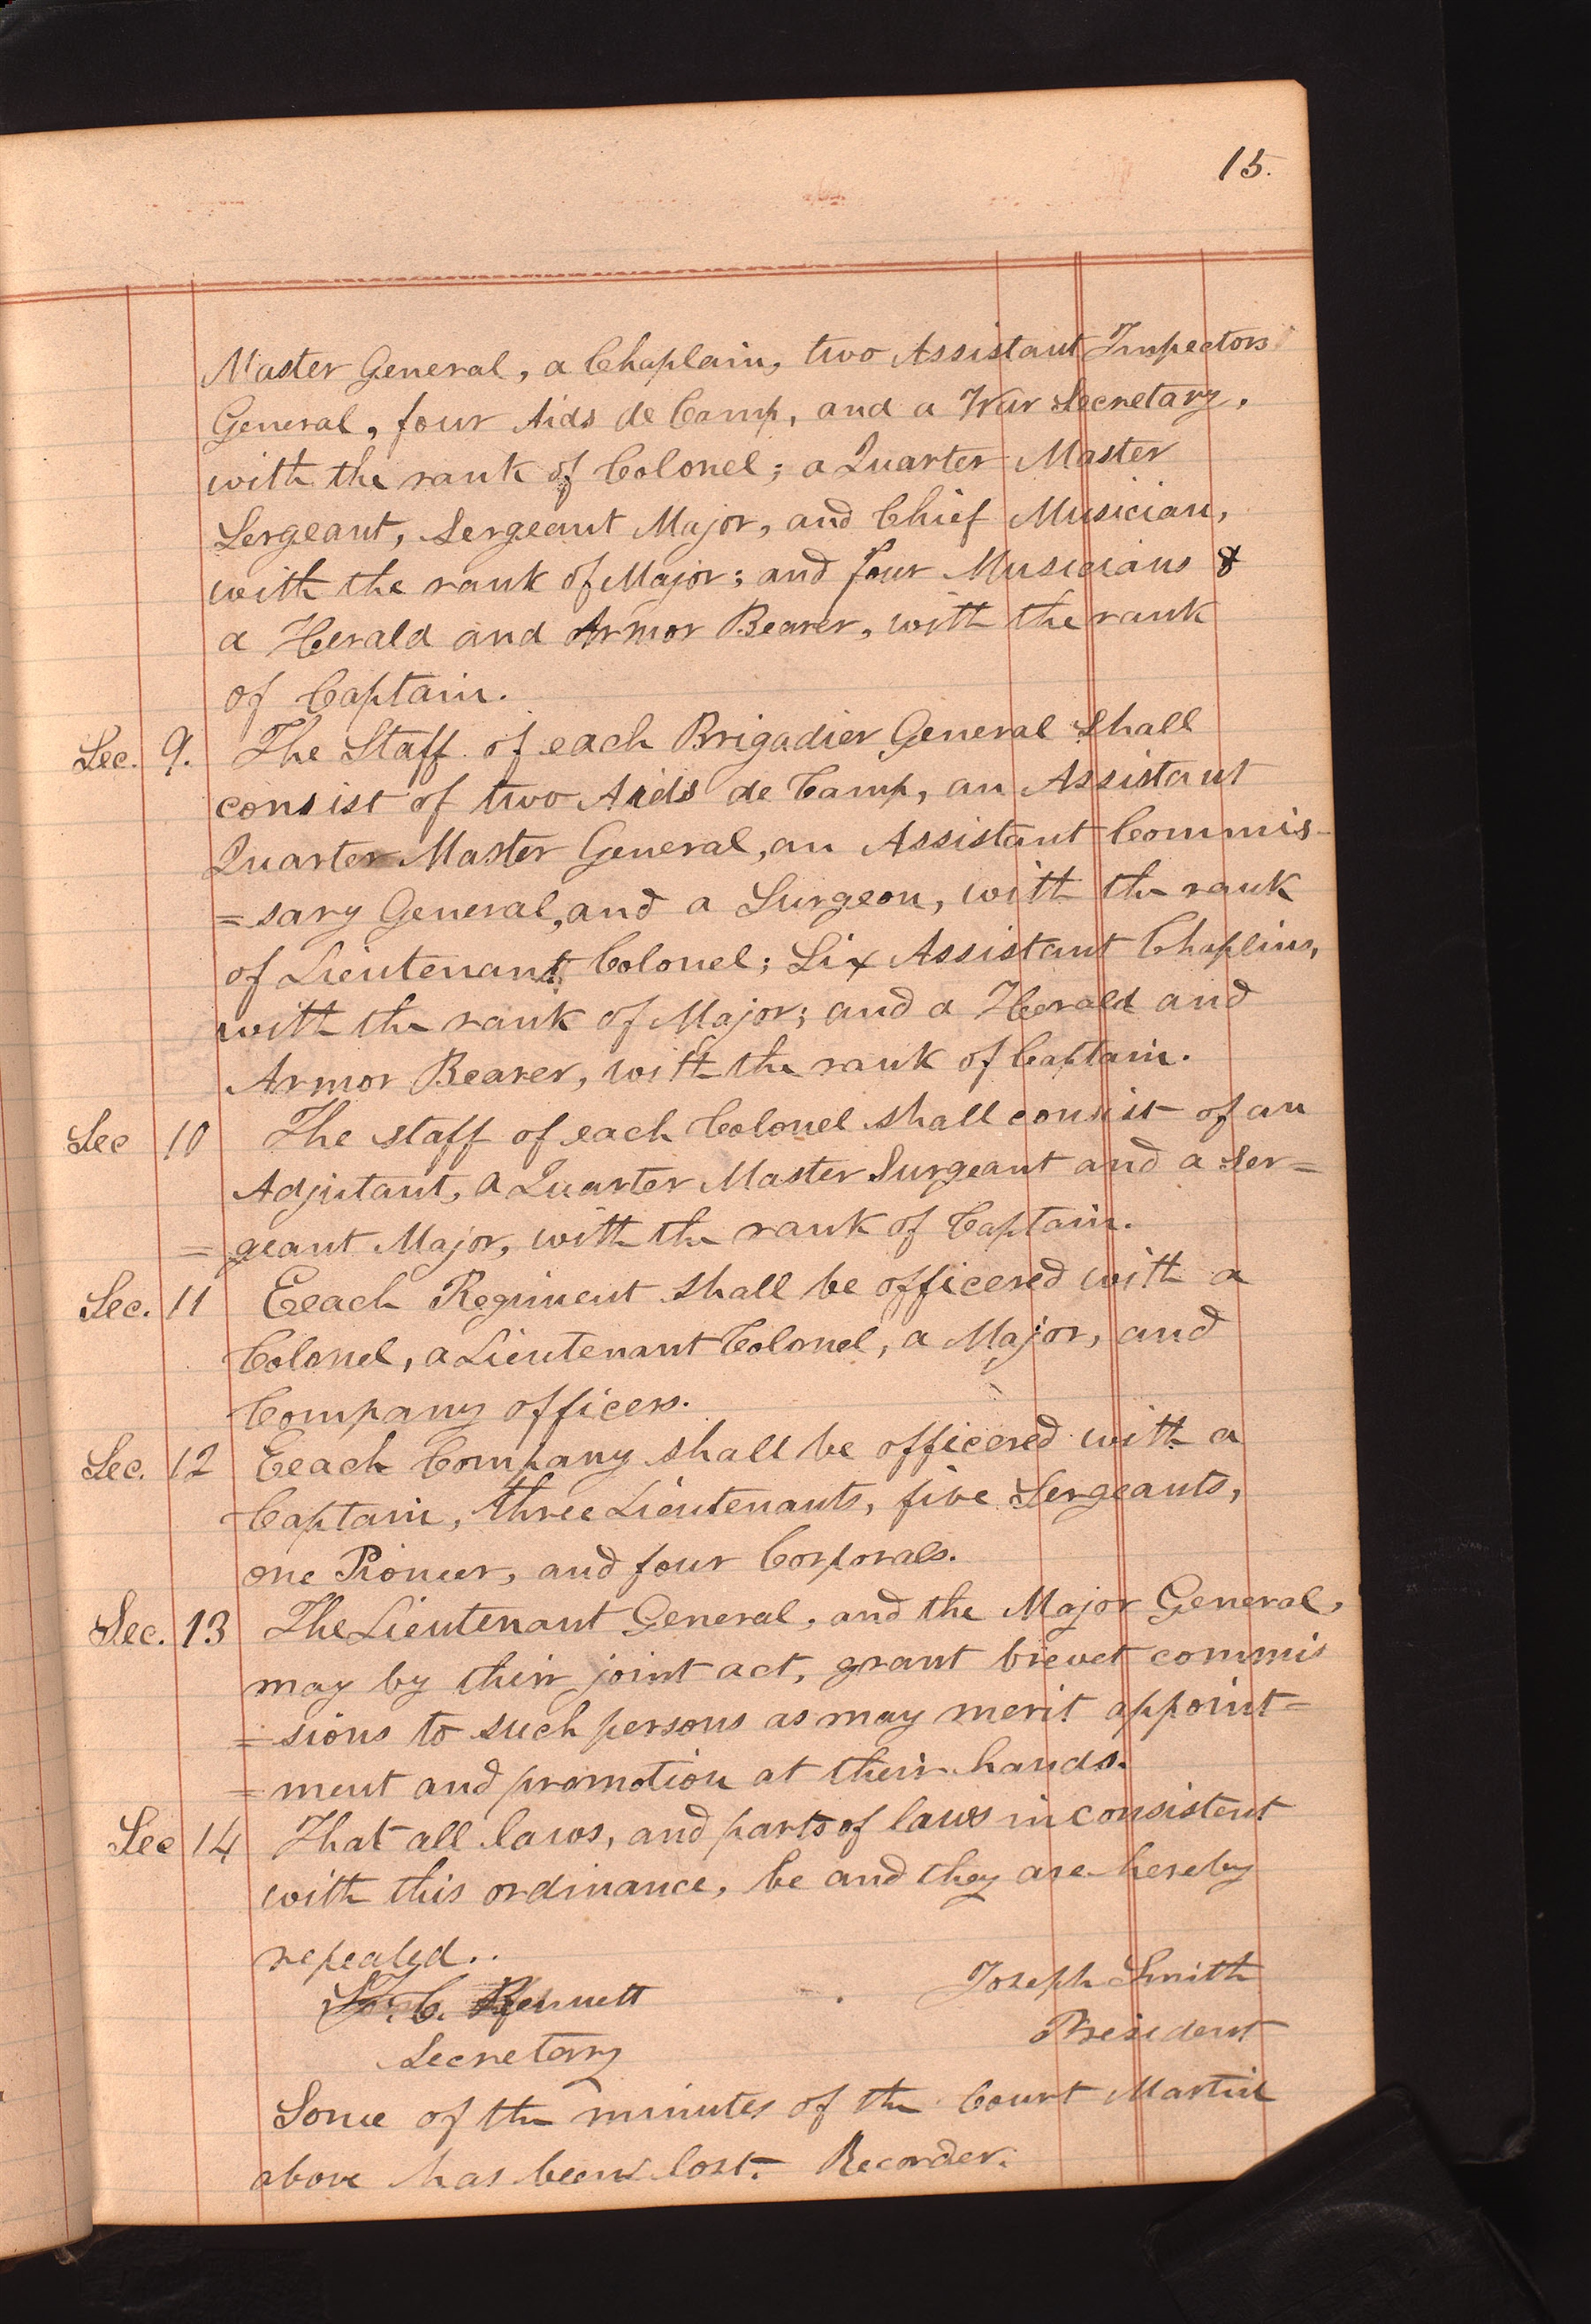 15.
Master General, a Chaplain, two Assistant Inspectors
General, four Aids de Camp, and a War Secretary,
with the rank of Colonel; a Quarter Master
Sergeant, Sergeant Major, and Chief Musician,
with the rank of Major; and four Musicians &
a Herald and Armor Bearer, with the rank
of Captain.
Sec. 9. The Staff of each Brigadier General shall
consist of two Aids de Camp, an Assistant
Quarter Master General, an Assistant Commis-
=sary General, and a Surgeon, with the rank
of Lieutenant Colonel; Six Assistant Chaplins,
with the rank of Major; and a Herald and
Armor Bearer, with the rank of Captain.
Sec 10 The staff of each Colonel shall consist of an
Adjutant, a Quarter Master Surgeant and a Ser=
=geant Major, with the rank of Captain.
Sec. 11 Eeach Regiment shall be officered with a
Colonel, a Lieutenant Colonel, a Major, and
Company officers.
Sec. 12 Eeach Company shall be officered with a
Captain, three Lieutenants, five Sergeants,
one Pioneer, and four Corporals.
Sec. 13 The Lieutenant General, and the Major General,
may by their joint act, grant brevet commis
=sions to such persons as may merit appoint=
=ment and promotion at their hands.
Sec 14 That all laws, and parts of laws inconsistent
with this ordinance, be and they are hereby
repealed..
J. C. Bennett Joseph Smith
Secretary President
Some of the minutes of the Court Martial
above has been lost. Recorder.